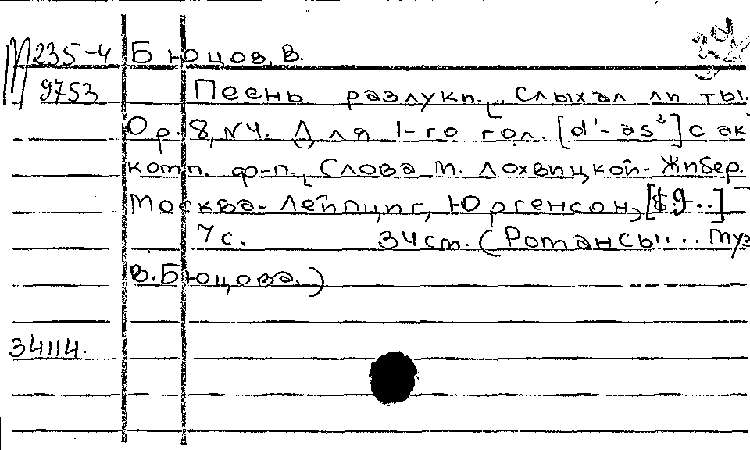 М 235-4 Бюцов, В.
9753 Песнь разлуки. „Слыхал ли ты!
Op. 8, N4. Для 1-го гол. [d'-as²] с ак
комп. ф-п. Слова М. Лохвицкой-Жибер.
Москва-Лейпциг, Юргенсон,
7 с. 34 cm. (Романсы... муз
В. Бюцова.)
34114.